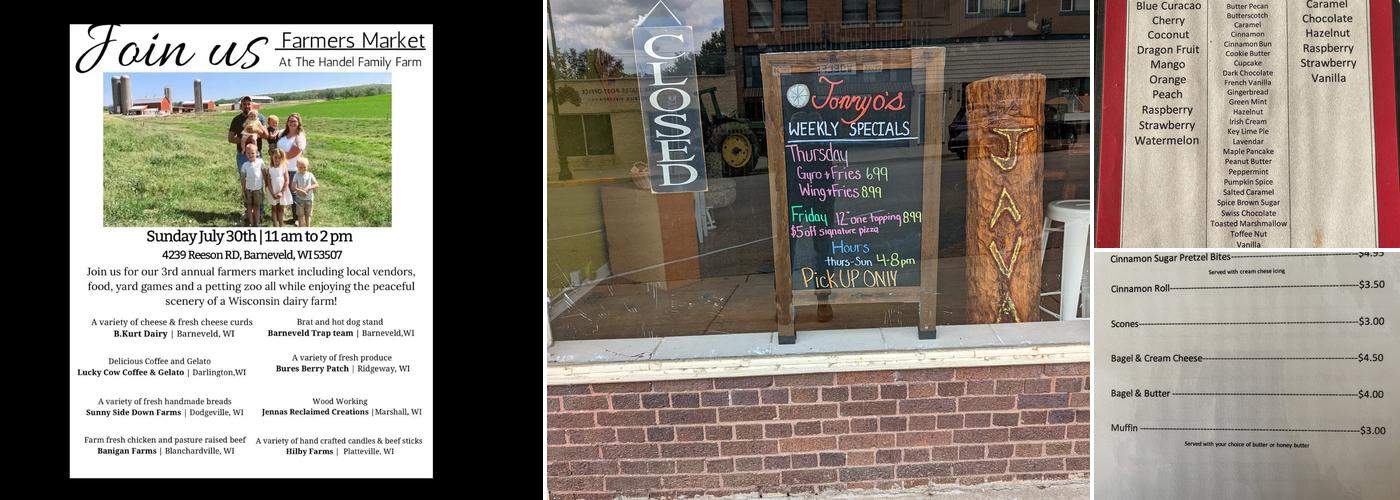 Join us
Farmers Market
At The Handel Family Farm
Sunday July 30th | 11 am to 2 pm
4239 Reeson RD, Barneveld, WI 53507
Join us for our 3rd annual farmers market including local vendors,
food, yard games and a petting zoo all while enjoying the peaceful
scenery of a Wisconsin dairy farm!
A variety of cheese & fresh cheese curds
B.Kurt Dairy | Barneveld, WI
Brat and hot dog stand
Barneveld Trap team | Barneveld,WI
Delicious Coffee and Gelato
Lucky Cow Coffee & Gelato | Darlington,WI
A variety of fresh produce
Bures Berry Patch | Ridgeway, WI
A variety of fresh handmade breads
Sunny Side Down Farms | Dodgeville, WI
Wood Working
Jennas Reclaimed Creations |Marshall, WI
Farm fresh chicken and pasture raised beef
Banigan Farms | Blanchardville, WI
A variety of hand crafted candles & beef sticks
Hilby Farms | Platteville, WI
CLOSED
Jonnyo's
WEEKLY SPECIALS
Thursday
Gyro + Fries 6.99
Wing + Fries 8.99
Friday 12" one topping 8.99
$5 off signature pizza
Hours
thurs-Sun 4-8pm
PICK UP ONLY
JAVA
Blue Curacao
Cherry
Coconut
Dragon Fruit
Mango
Orange
Peach
Raspberry
Strawberry
Watermelon
Butter Pecan
Butterscotch
Caramel
Cinnamon
Cinnamon Bun
Cookie Butter
Cupcake
Dark Chocolate
French Vanilla
Gingerbread
Green Mint
Hazelnut
Irish Cream
Key Lime Pie
Lavendar
Maple Pancake
Peanut Butter
Peppermint
Pumpkin Spice
Salted Caramel
Spice Brown Sugar
Swiss Chocolate
Toasted Marshmallow
Toffee Nut
Vanilla
Caramel
Chocolate
Hazelnut
Raspberry
Strawberry
Vanilla
Cinnamon Sugar Pretzel Bites $4.95
Served with cream chese icing
Cinnamon Roll $3.50
Scones $3.00
Bagel & Cream Cheese $4.50
Bagel & Butter $4.00
Muffin $3.00
Served with your choice of butter or honey butter